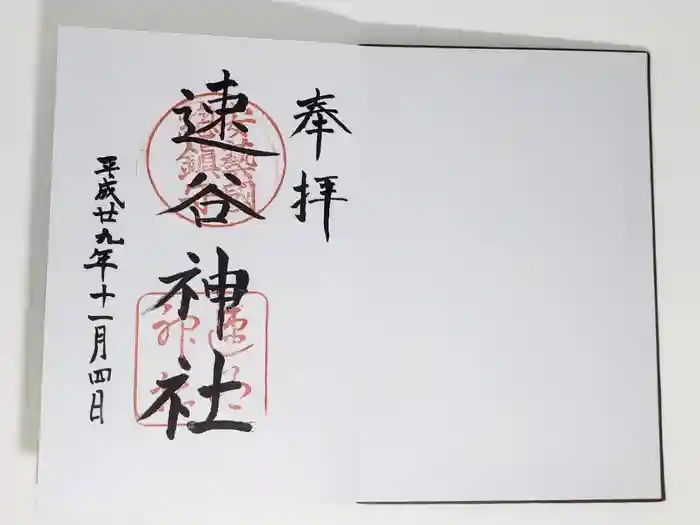 奉拝
速谷神社
平成廿九年十一月四日
安藝國
総鎮守
速谷
神社